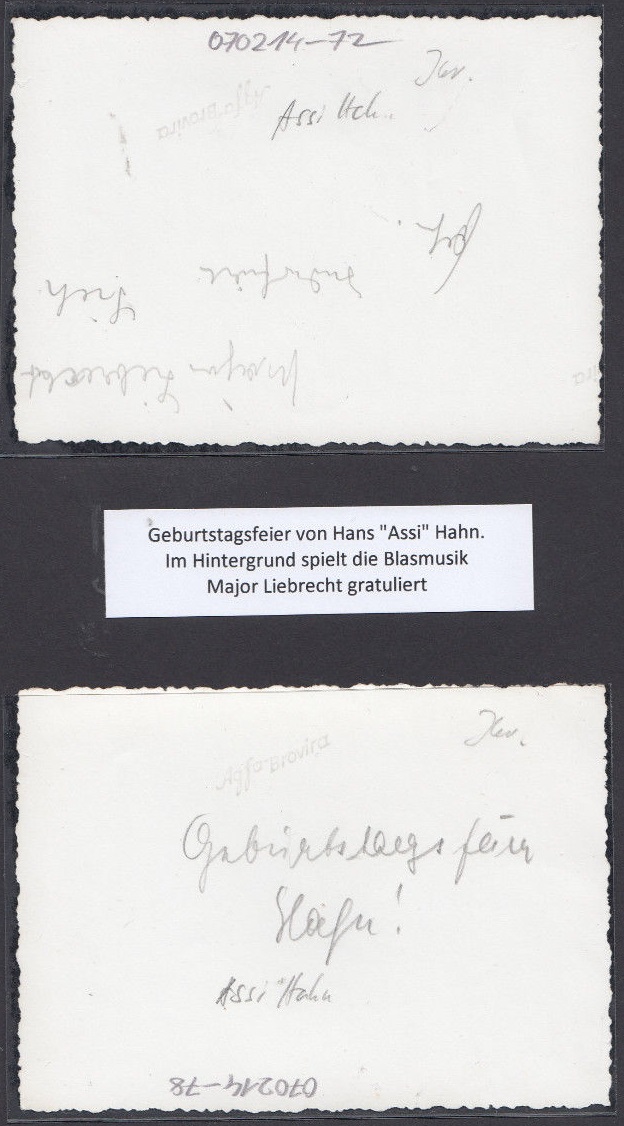 070214-72
Assi Hah.
Agfa-Brovira
Major Liebrecht
Geburtstagsfeier von Hans "Assi" Hahn.
Im Hintergrund spielt die Blasmusik
Major Liebrecht gratuliert
Agfa-Brovira
Geburtstagsfeier
Hahn!
Assi Hahn
070214-78